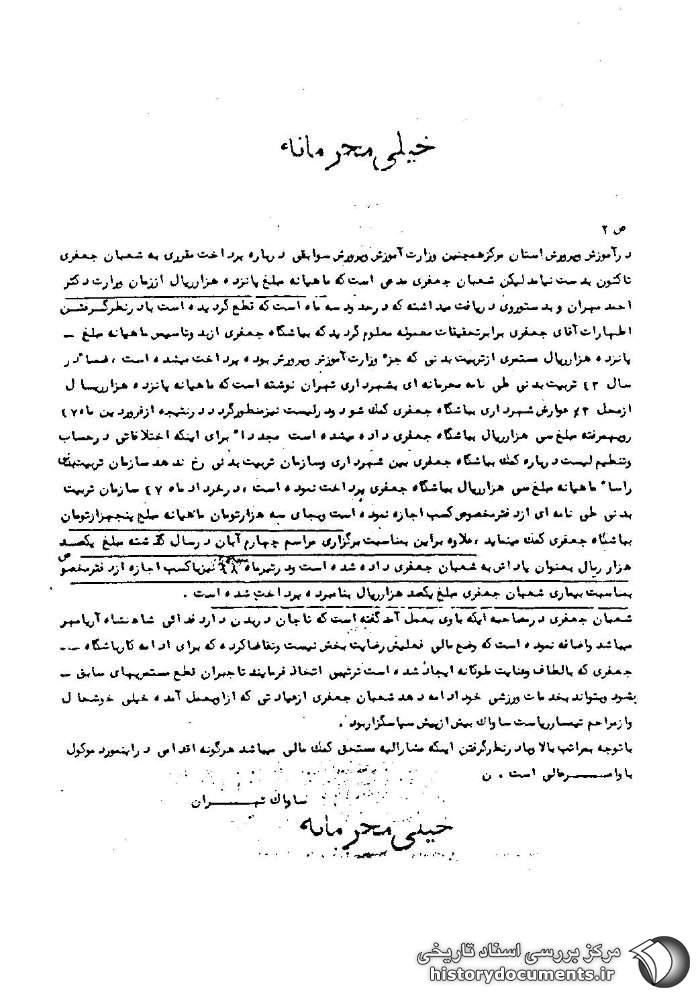 خیلی محرمانه
ص ۲
درآموزش وپرورش استان مرکزهمچنین وزارت آموزش وپرورش سوابقی درباره پرداخت مقرری به شعبان جعفری
تاکنون بدست نیامد لیکن شعبان جعفری مدعی است که ماهیانه مبلغ پانزده هزارریال اززمان وزارت دکتر
احمد مهران و بدستوروی دریافت میداشته که درحدود سه ماه است که قطع گردیده است بادرنظرگرفتن
اظهارات آقای جعفری برابرتحقیقات معموله معلوم گردید که بباشگاه جعفری ازبدو تاسیس ماهیانه مبلغ –
پانزده هزارریال مستمری ازتربیت بدنی که جزء وزارت آموزش وپرورش بوده پرداخت میشده است ، ضمناً در
سال ۴۳ تربیت بدنی طی نامه محرمانه ای بشهرداری تهران نوشته است که ماهیانه پانزده هزارریسال
ازمحل ۳٪ عوارض شهرداری بباشگاه جعفری کمک شود ودرلیست نیزمنظورگردد درنتیجه ازفروردین ماه ۴۷
رویهمرفته مبلغ سی هزارریال بباشگاه جعفری داده میشده است مجدداً برای اینکه اختلافاتی درحساب
وتنظیم لیست درباره کمک بباشگاه جعفری بین شهرداری وسازمان تربیت بدنی رخ ندهد سازمان تربیت بدنی
راساً ماهیانه مبلغ سی هزارریال بباشگاه جعفری پرداخت نموده است ، درخرداد ماه ۴۷ سازمان تربیت
بدنی طی نامه ای ازدفترمخصوص کسب اجازه نموده است وبجای سه هزارتومان ماهیانه مبلغ پنجهزارتومان
بباشگاه جعفری کمک مینماید ، علاوه براین بمناسبت برگزاری مراسم چهارم آبان درسال گذشته مبلغ یکصد
هزار ریال بعنوان پاداش به شعبان جعفری داده شده است ودرتیرماه ۴۸ نیزباکسب اجازه ازدفترمخصوص
بمناسبت بیماری شعبان جعفری مبلغ یکصد هزارریال بنامبرده پرداخت شده است .
شعبان جعفری درمصاحبه ایکه باوی بعمل آمد گفته است که تاجان دربدن دارد فدائی شاهنشاه آریامهر
میباشد واضافه نموده است که وضع مالی فعلیش رضایت بخش نیست وتقاضاکرده که برای ادامه کارباشگاه --
جعفری که بالطاف وعنایت ملوکانه ایجاد شده است ترتیبی اتخاذ فرمایند تاجبران قطع مستمریهای سابق –
بشود وبتواند بخدمات ورزشی خود ادامه دهد شعبان جعفری ازعیادتی که ازاوبعمل آمده خیلی خوشحال
وازمراحم تیمسارریاست ساواک بیش ازپیش سپاسگزاربود .
باتوجه بمراتب بالا وبادرنظرگرفتن اینکه مشارالیه مستحق کمک مالی میباشد هرگونه اقدامی دراینمورد موکول
باوامـــرعالی است . ن
ساواک تهـــران
خیلی محرمانه
مرکز بررسی اسناد تاریخی
historydocuments.ir